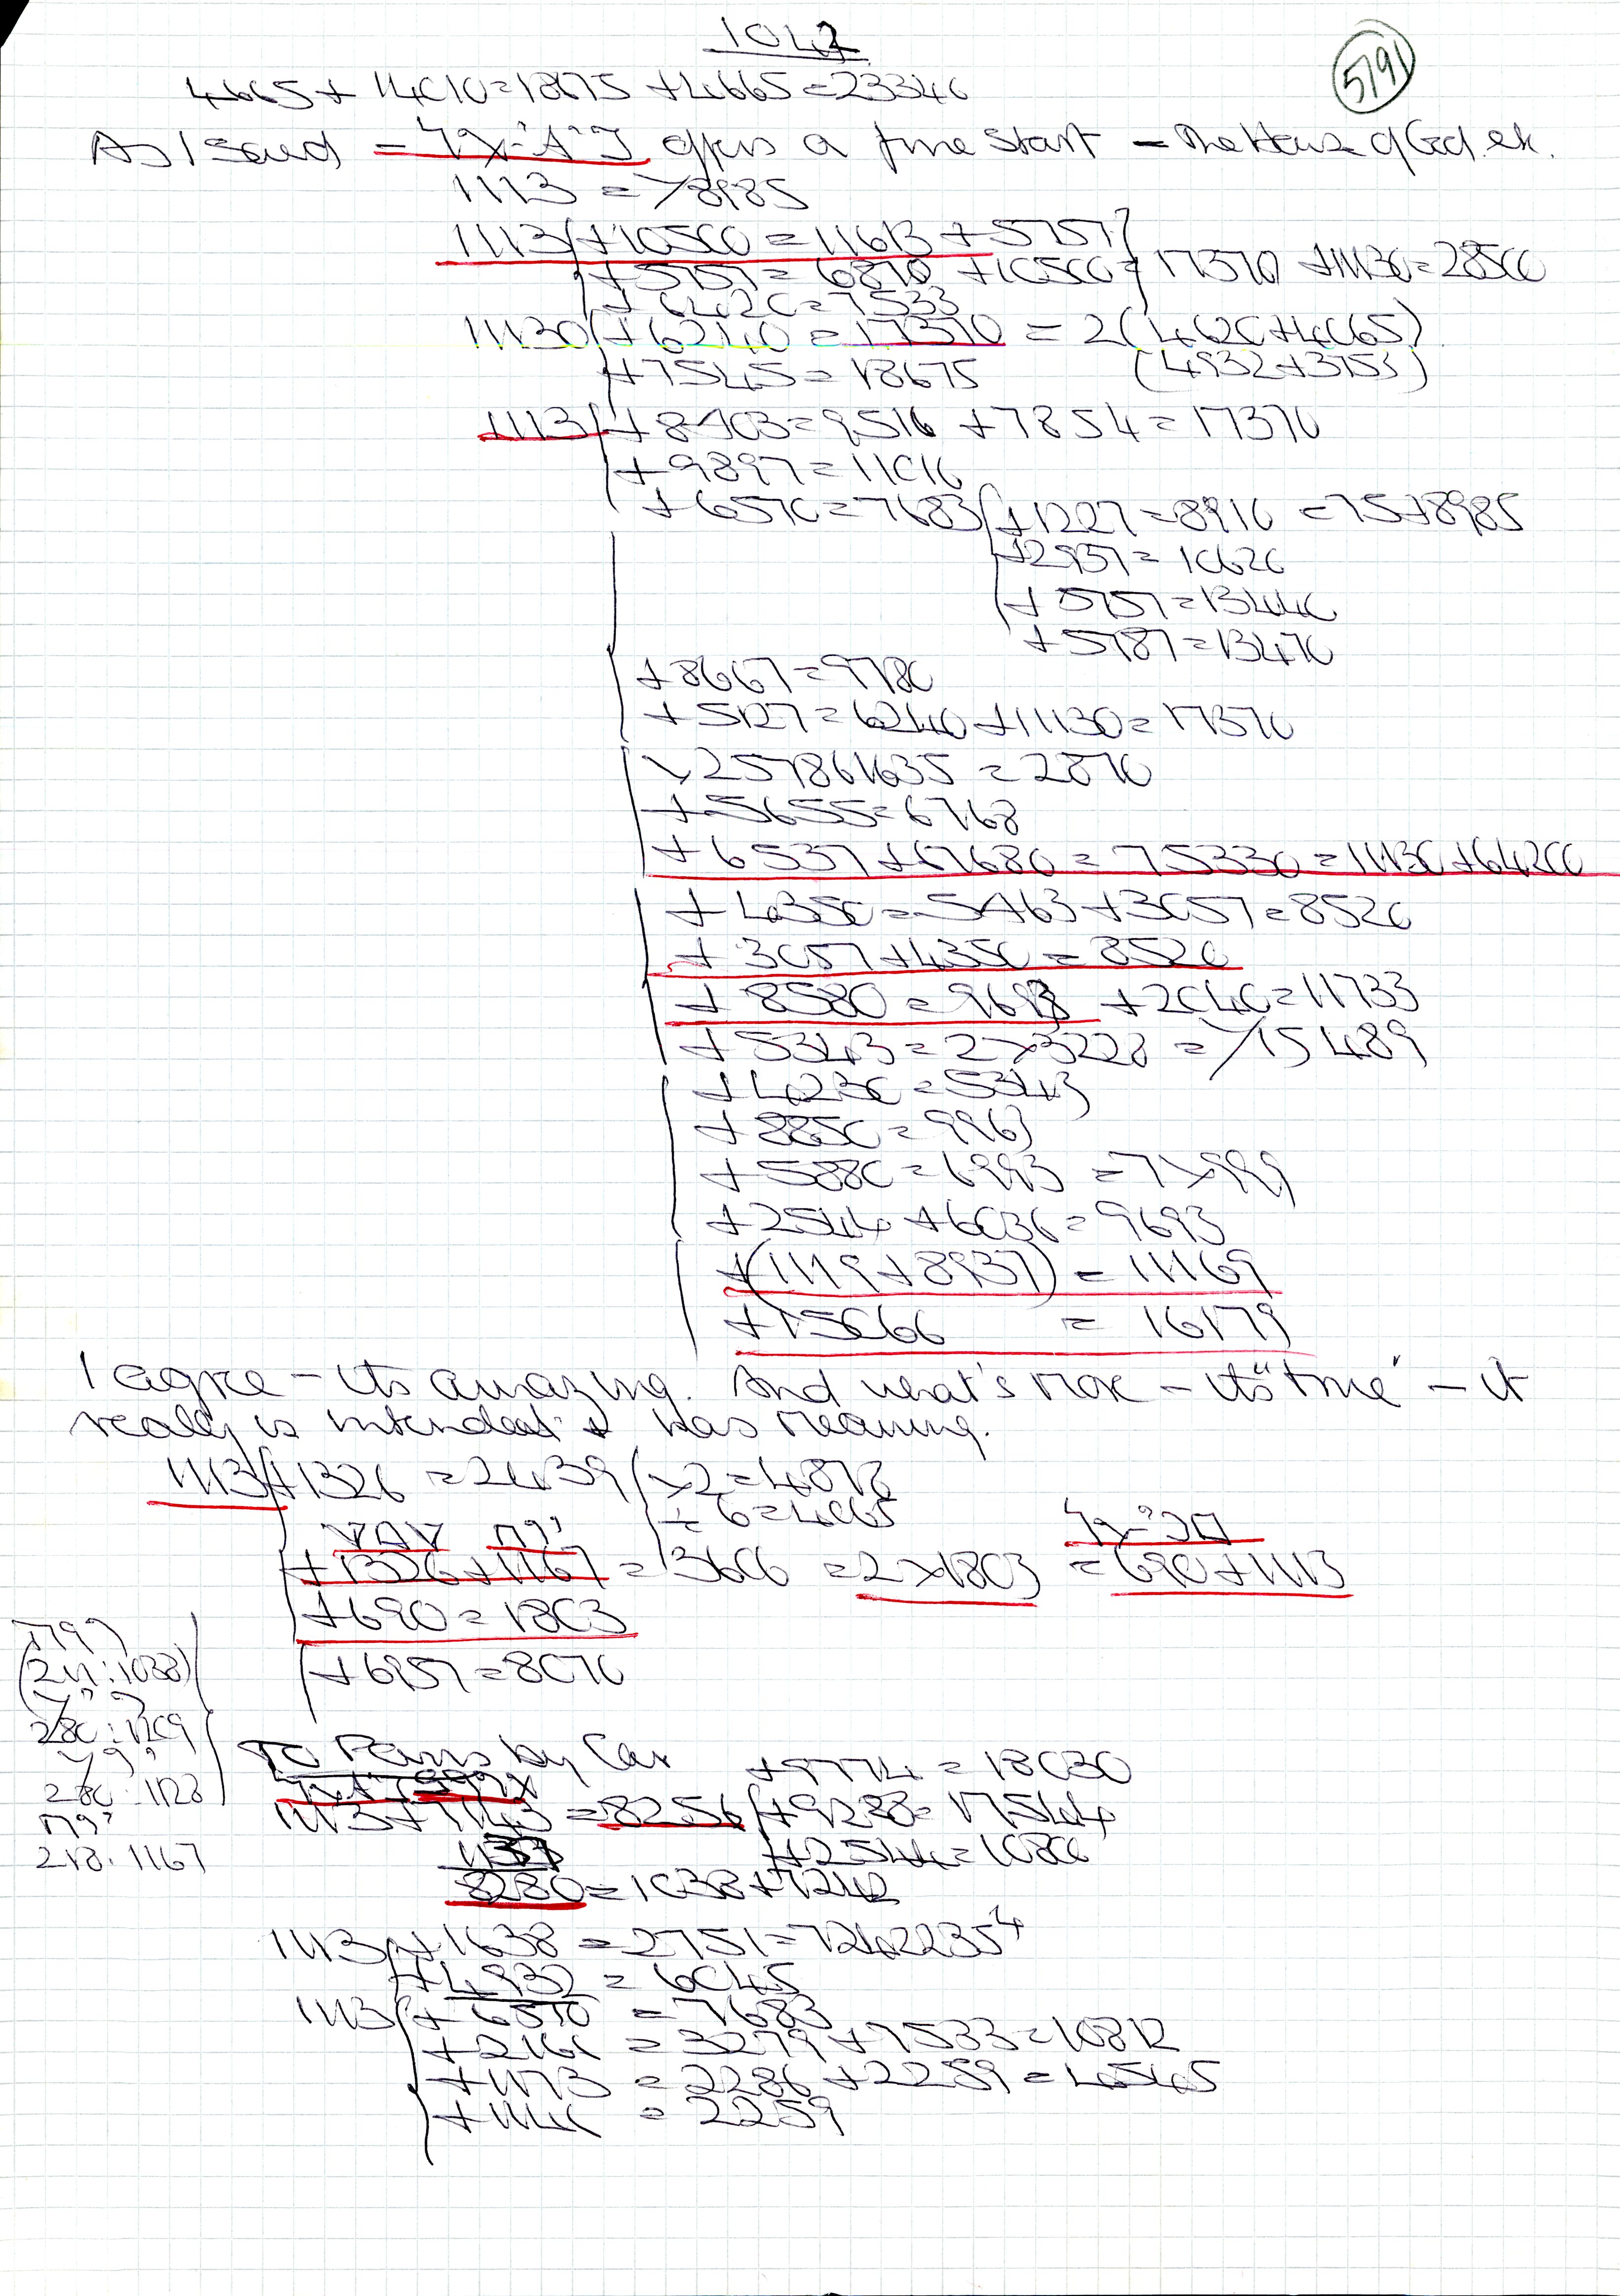 1042
5791
4665 + 14010 = 18675 + 4665 = 23340
As I said = offers a fine start - The House of God. etc.
1113 = >8985
1113 (+10500 = 11613 + 5757
+ 5757 = 6870 + 10500 = 17370 + 11130 = 28500
+ 6420 = 7533
11130 (+6240 = 17370 = 2(4620+4065)
+7545 = 18675 (4932+3753)
1113 (+8403 = 9516 + 7854 = 17370
+ 9897 = 11010
+ 6570 = 7683 (+1227 = 8910 = 75+8985
+2937 = 10620
+ 5757 = 13440
+ 5787 = 13470
+ 8667 = 9780
+ 5127 = 6240 + 11130 = 17370
×257861635 = 2870
+ 5655 = 6768
+ 6537 + 67680 = 75330 = 11130 + 64200
+ 4350 = 5463 + 3057 = 8520
+ 3057 + 4350 = 8520
+ 8580 = 9693 + 2040 = 11733
+ 5343 = 2×3228 = >15489
+ 4230 = 5343
+ 8850 = 9963
+ 5880 = 6993 = 7×999
+ 2544 + 6036 = 9693
+ (1119 + 8937) = 11169
+ 15066 = 16179
I agree - its amazing. And what's more - its "true" - it
really is intended & has meaning.
1113 (+1326 = 2439 (×2 = 4878
+ 6 = 4065
VAV
+1326 + 1167 = 3606 = 2×1803 = 690 + 1113
+690 = 1803
+6957 = 8070
(211:1038)
280:1209
280:1128
218:1167
To Paris by Car +9774 = 18030
1113 + 7143 = 8256 (+9288 = 17544
+2544 = 10800
8280 = 1038 + 7242
1113 (+1638 = 2751 = 7242235⁴
+4932 = 6045
1113 (+ 6570 = 7683
+2166 = 3279 + 7533 = 10812
+1173 = 2286 + 2259 = 4545
+1146 = 2259